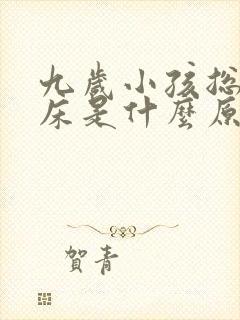 九歲小孩總
床是什麼原
賀青